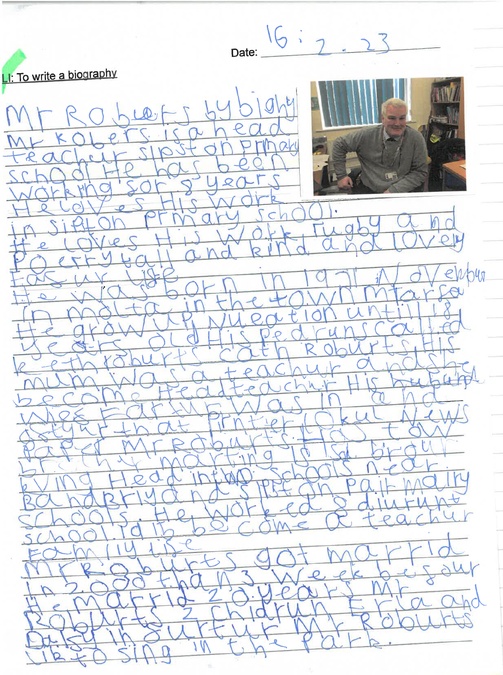 16.2.23
Date:
LI: To write a biography
Mr Roberts by bighy
Mr Robers is a head
teachur sipston primary
school He has been
working for 8 years
He loves His work
in sipton prmary school.
He loves His work rugby and
Poerry ball and kind and lovely
Family life
He was born in 1971 November
in molta in the town mtarfa
He grow up Nueation until 18
years old His pedruns called
keeth roburts cath Roburts His
mum was a teachur and she
become Headteachur His
was in a
that Printer lokul News
Paper Mr Roburts Has tow
is a
Head in two schools near
and sipston pairmairy
schools. He worked 8 diurunt
school. id it become a teachur
Family life
Mr Roburts got marrid
in 2000 than 3 week befour
He marrid 20 years Mr
Roburts 2 childrun Erla and
Daisy in furtur Mr Roburts
lik to sing in the Park.